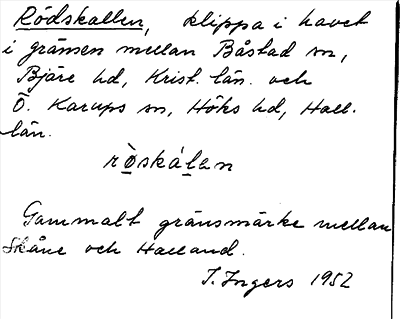 Rödskallen, klippa i havet
i gränsen mellan Båstad sn,
Bjäre hd, Krist. län. och
Ö. Karups sn, Höks hd, Hall.
län.
rò̱skáḻen
Gammalt gränsmärke mellan
Skåne och Halland.
I. Ingers 1952